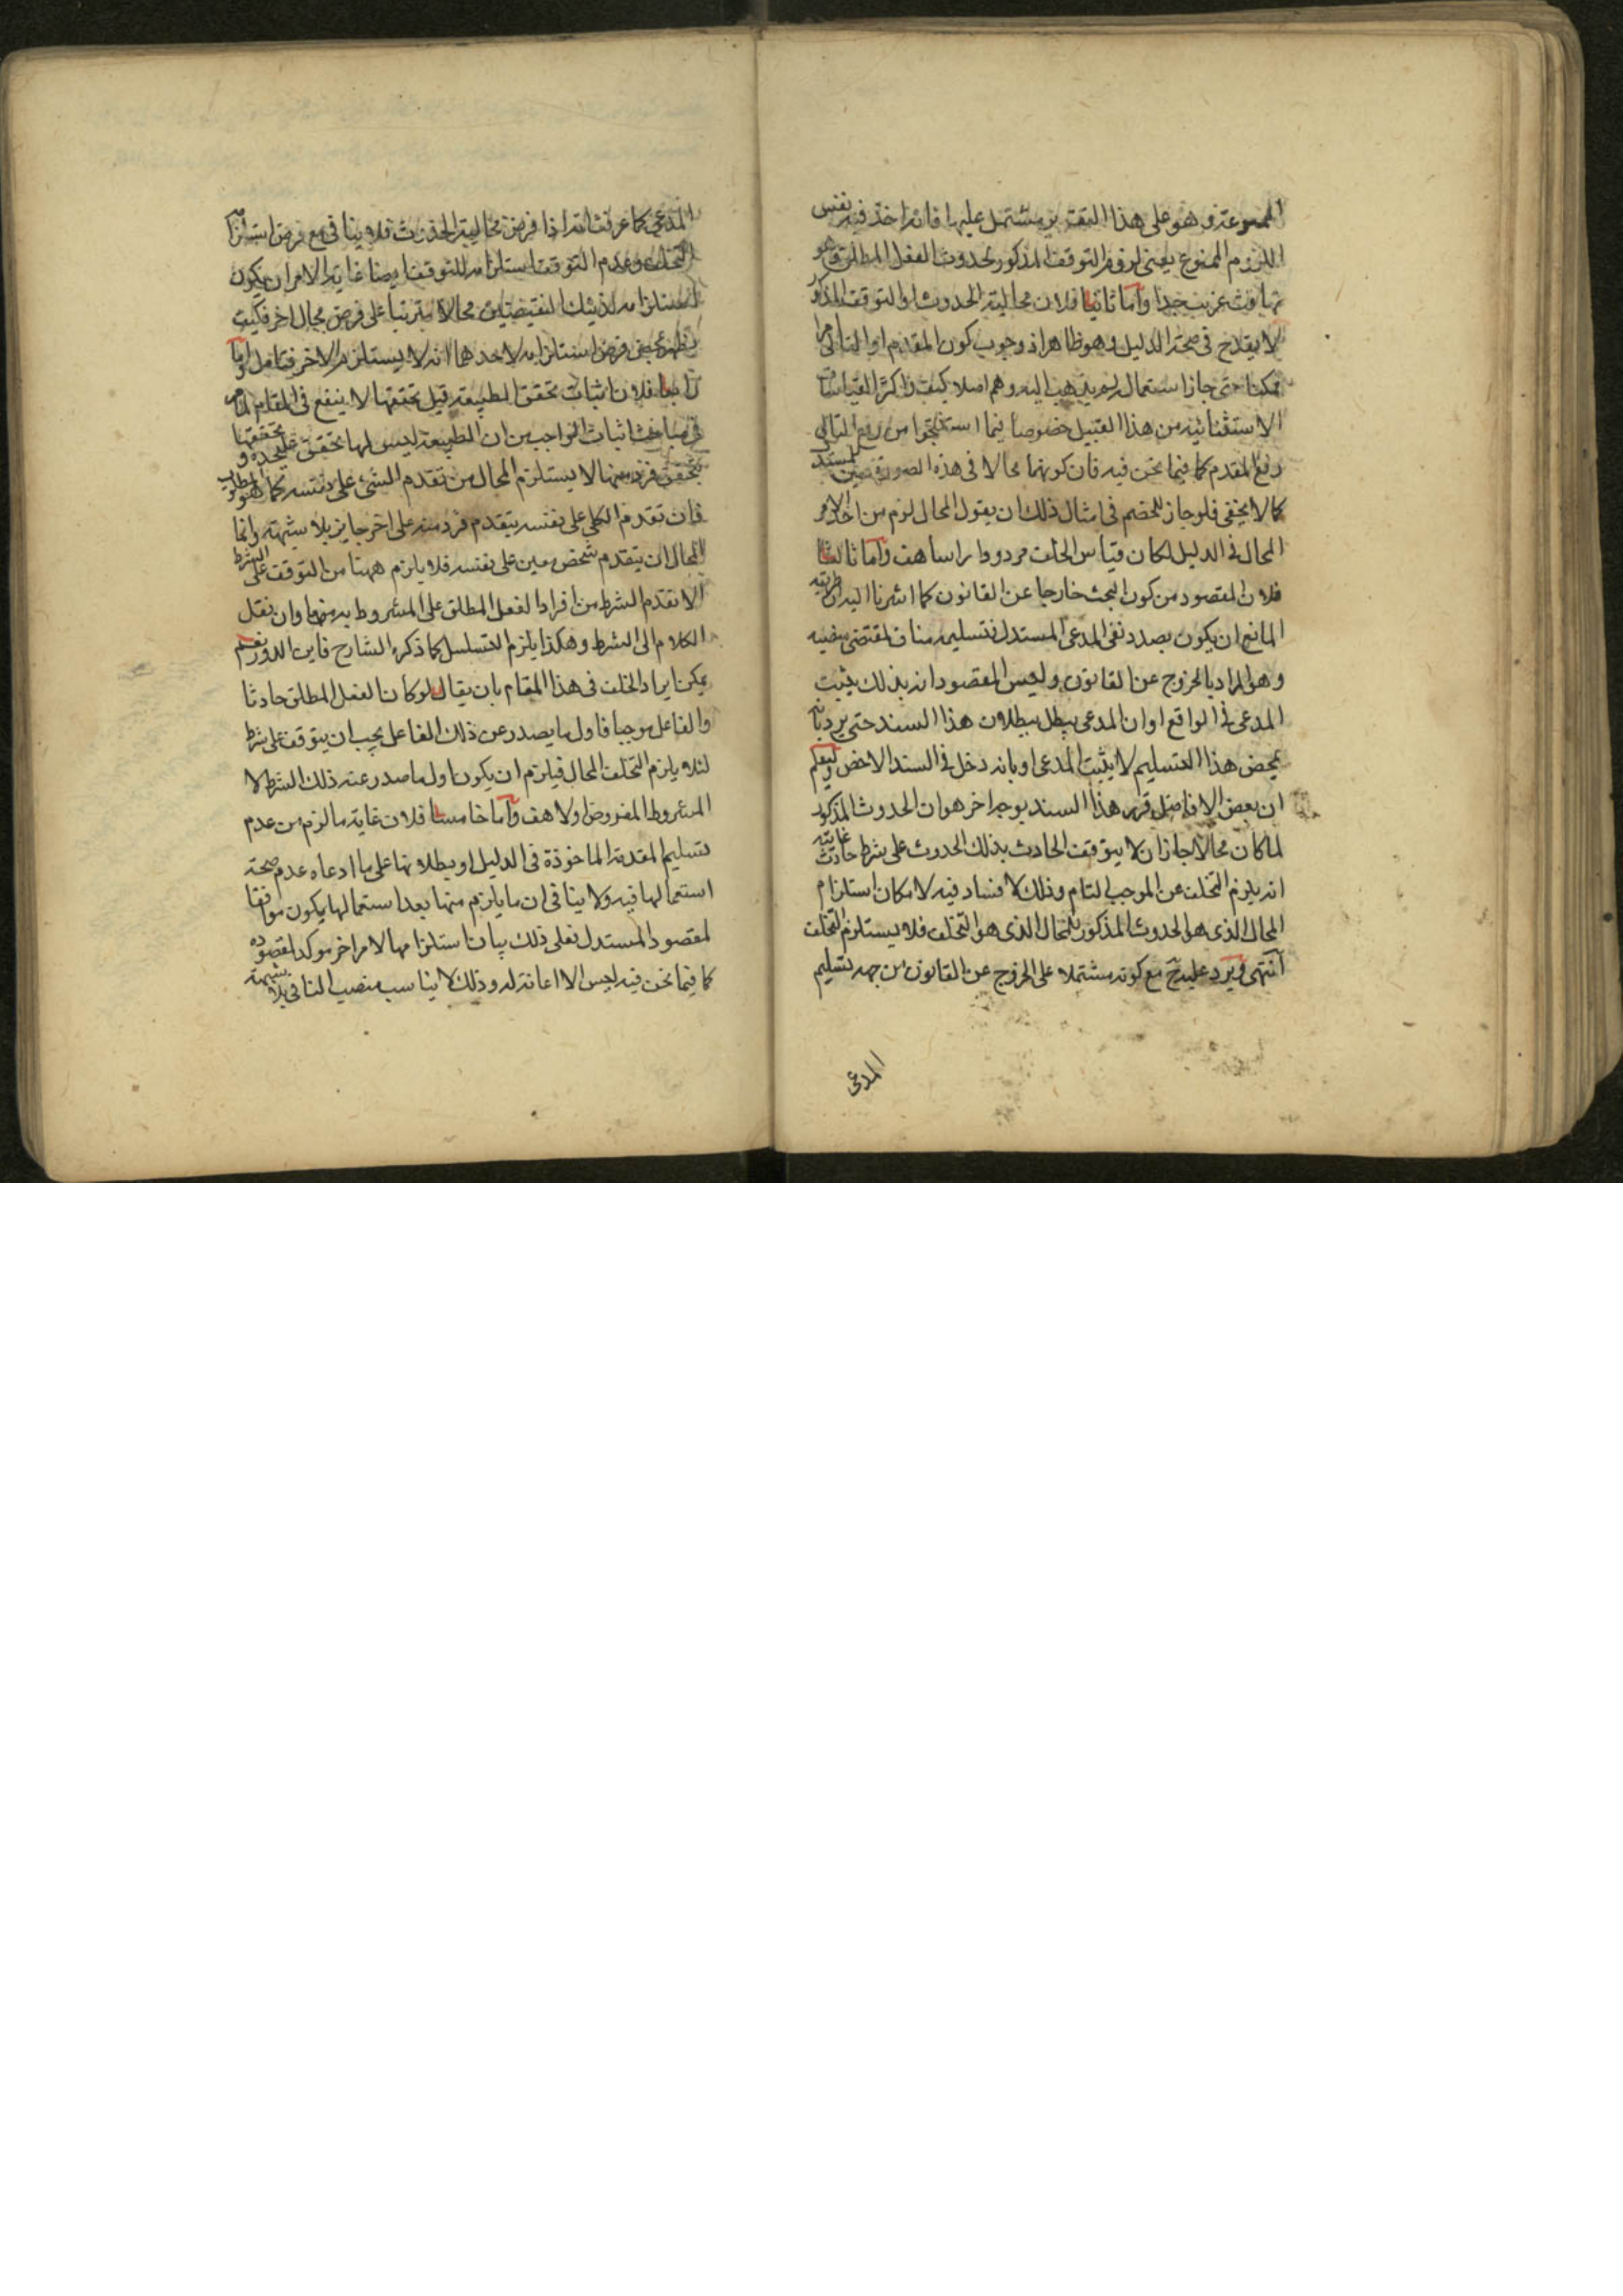 الممنوعة وهو على هذا التقدير مشتمل عليها فانه اخذ فيه نفس
اللزوم الممنوع يعنى لزوم التوقف المذكور لحدوث الفعل المطلق وهو
تهافت غريب جدا واما ثانيا فلان محالية الحدوث او التوقف المذكور
لا يقدح فى صحة الدليل وهو ظاهر اذ وجوب كون المقدم او التالى امرا
ممكنا حتى جاز استعمال لم يذهب اليه وهم اصلا كيف واكثر القياسات
الاستثنائية من هذا القبيل خصوصا فيما استنتجوا من رفع التالى
رفع المقدم كما فيما نحن فيه فان كونهما محالا فى هذه الصورة
كما لا يخفى فلو جاز للخصم فى امثال ذلك ان يقول المحال لزم من اخذ الامر
المحال فى الدليل لكان قياس الخلف مردودا راسا هف واما ثالثا
فلان المقصود من كون البحث خارجا عن القانون كما اشرنا اليه ان طريقه
المانع ان يكون بصدد نفى المدعى المستدل فتسليمه مناف لمقتضى منصبه
وهو المراد بالخروج عن القانون وليس المقصود انه بذلك يثبت
المدعى فى الواقع او ان المدعى يبطل ببطلان هذا السند حتى يرد بانه
بمحض هذا التسليم لا يثبت المدعى او بانه دخل فى السند الاخص وليعلم
ان بعض الافاضل قرر هذا السند بوجه اخر هو ان الحدوث المذكور
لما كان محالا جاز ان لا يتوقف الحادث بذلك الحدوث على شرط حادث غايته
انه يلزم التخلف عن الموجب التام وذلك لا فساد فيه لامكان استلزام
المحال الذى هو الحدوث المذكور للمحال الذى هو التخلف فلا يستلزم التخلف
انتهى ويرد عليه ح مع كونه مشتملا على الخروج عن القانون من جهة تسليم
المدعى
المدعى كما عرفت انه اذا فرض محالية الحدوث فلا ينافى مع فرض استلزامه
التخلف وعدم التوقف استلزامه للتوقف ايضا غاية الامر ان يكون
استلزامه لذينك النقيضين محالا مترتبا على فرض محال اخر فكيف
يظهر بمحض فرض استلزامه لاحدهما انه لا يستلزم الاخر فتامل واما
رابعا فلان اثبات تحقق الطبيعة قبل تحققها لا ينفع فى المقام لما مر
فى مباحث اثبات الواجب من ان الطبيعة ليس لها تحقق عليحدة و تحققها
بتحقق فرد منها لا يستلزم المحال من تقدم الشئ على نفسه كما هو المطلوب
فان تقدم الكلى على نفسه بتقدم فرد منه على اخر جايز بلا شبهة وانما
المحال ان يتقدم شخص معين على نفسه فلا يلزم ههنا من التوقف على الشرط
الا تقدم الشرط من افراد الفعل المطلق على المشروط به منها وان نقل
الكلام الى الشرط وهكذا يلزم التسلسل كما ذكره الشارح فاين الدور نعم
يمكن ايراد الخلف فى هذا المقام بان يقال لو كان الفعل المطلق حادثا
والفاعل موجبا فاول ما يصدر عن ذلك الفاعل يجب ان يتوقف على شرط
لئلا يلزم التخلف المحال فيلزم ان يكون اول ما صدر عنه ذلك الشرط لا
المشروط المفروض اولا هف واما خامسا فلان غاية ما لزم من عدم
تسليم المقدمة الماخوذة فى الدليل او بطلانها على ما ادعاه عدم صحة
استعمالها فيه ولا ينافى ان ما يلزم منها بعد استعمالها يكون موافقا
لمقصود المستدل فعلى ذلك بيان استلزامها لامر اخر موكد لمقصوده
كما فيما نحن فيه ليس الا اعانة له وذلك لا يناسب منصب النافى بلا شبهة